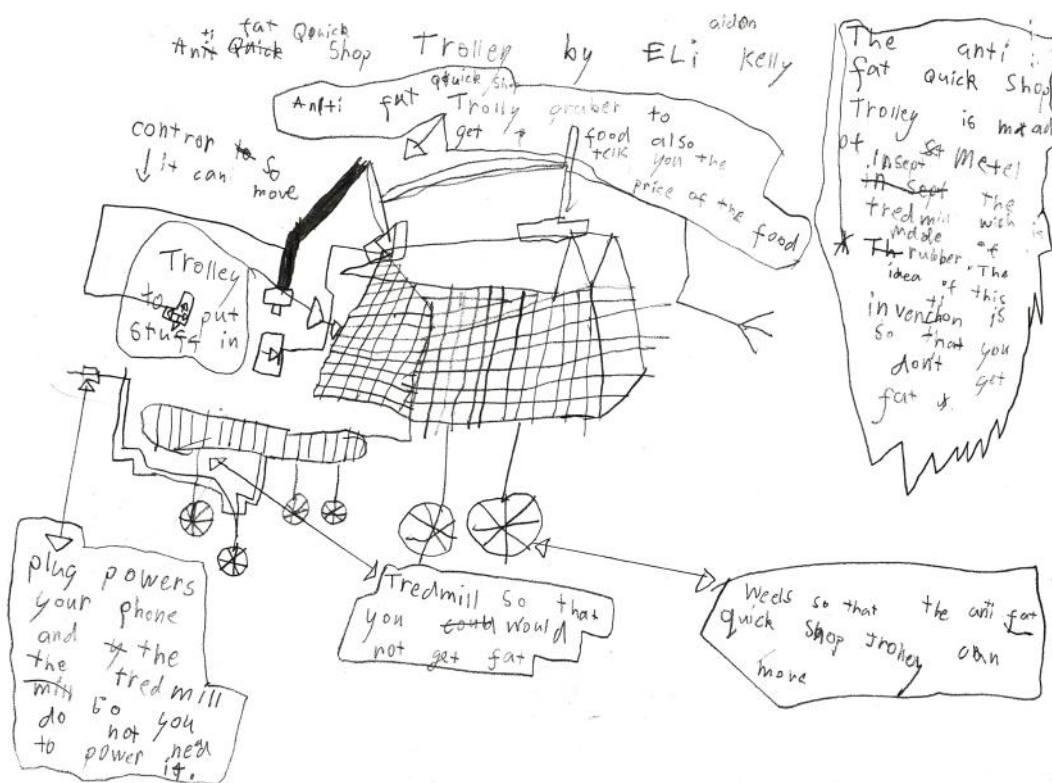 Anti fat Qouick Shop Trolley by ELi aidon Kelly
Antti fat Qouick Shop
Trolly graber to
get food also
tells you the
price of the food
contror to so
↓ it can move
Trolley
to put
stuff in
The anti
fat quick shop
Trolley is mad
of st Metel
insept
in sept the
tredmill wich is
madde of
* Th rubber "The
idea of this
invenchon is
so that you
don't get
fat
plug powers
your phone
and the
the tredmill
mill so you
do not need
to power it.
Tredmill so that
you could would
not get fat
Weels so that the anti fat
quick Shop Trolley can
move